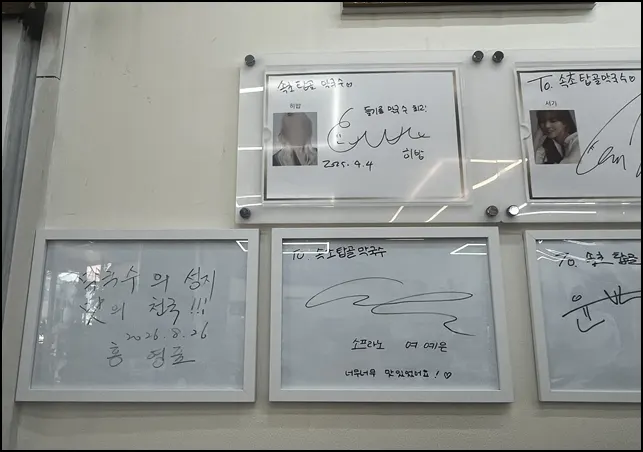 속초 탑골 막국수♡
히밥
들기름 막국수 최고!
2025.4.4
히밥
To. 속초 탑골막국수♡
서기
막국수 의 성지
맛의 천국 !!!
2026.8.26
홍 영표
To. 속초탑골막국수
소프라노 여 예은
너무너무 맛있었어요! ♡
To. 속초 탑골